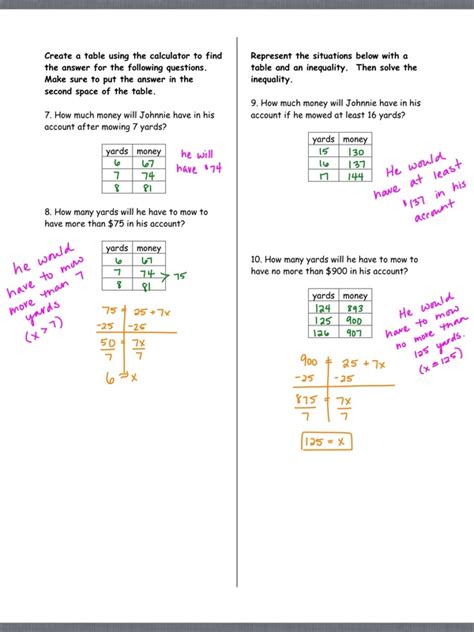 Create a table using the calculator to find
the answer for the following questions.
Make sure to put the answer in the
second space of the table.
7. How much money will Johnnie have in his
account after mowing 7 yards?
yards money
6 67
7 74
8 81
he will
have $74
8. How many yards will he have to mow to
have more than $75 in his account?
yards money
6 67
7 74 > 75
8 81
he would
have to mow
more than 7
yards
(x > 7)
75 = 25 + 7x
-25 -25
50 = 7x
7 7
6 = x
Represent the situations below with a
table and an inequality. Then solve the
inequality.
9. How much money will Johnnie have in his
account if he mowed at least 16 yards?
yards money
15 130
16 137
17 144
He would
have at least
$137 in his
account
10. How many yards will he have to mow to
have no more than $900 in his account?
yards money
124 893
125 900
126 907
He would
have to mow
no more than
125 yards.
900 = 25 + 7x
-25 -25
875 = 7x
7 7
125 = x